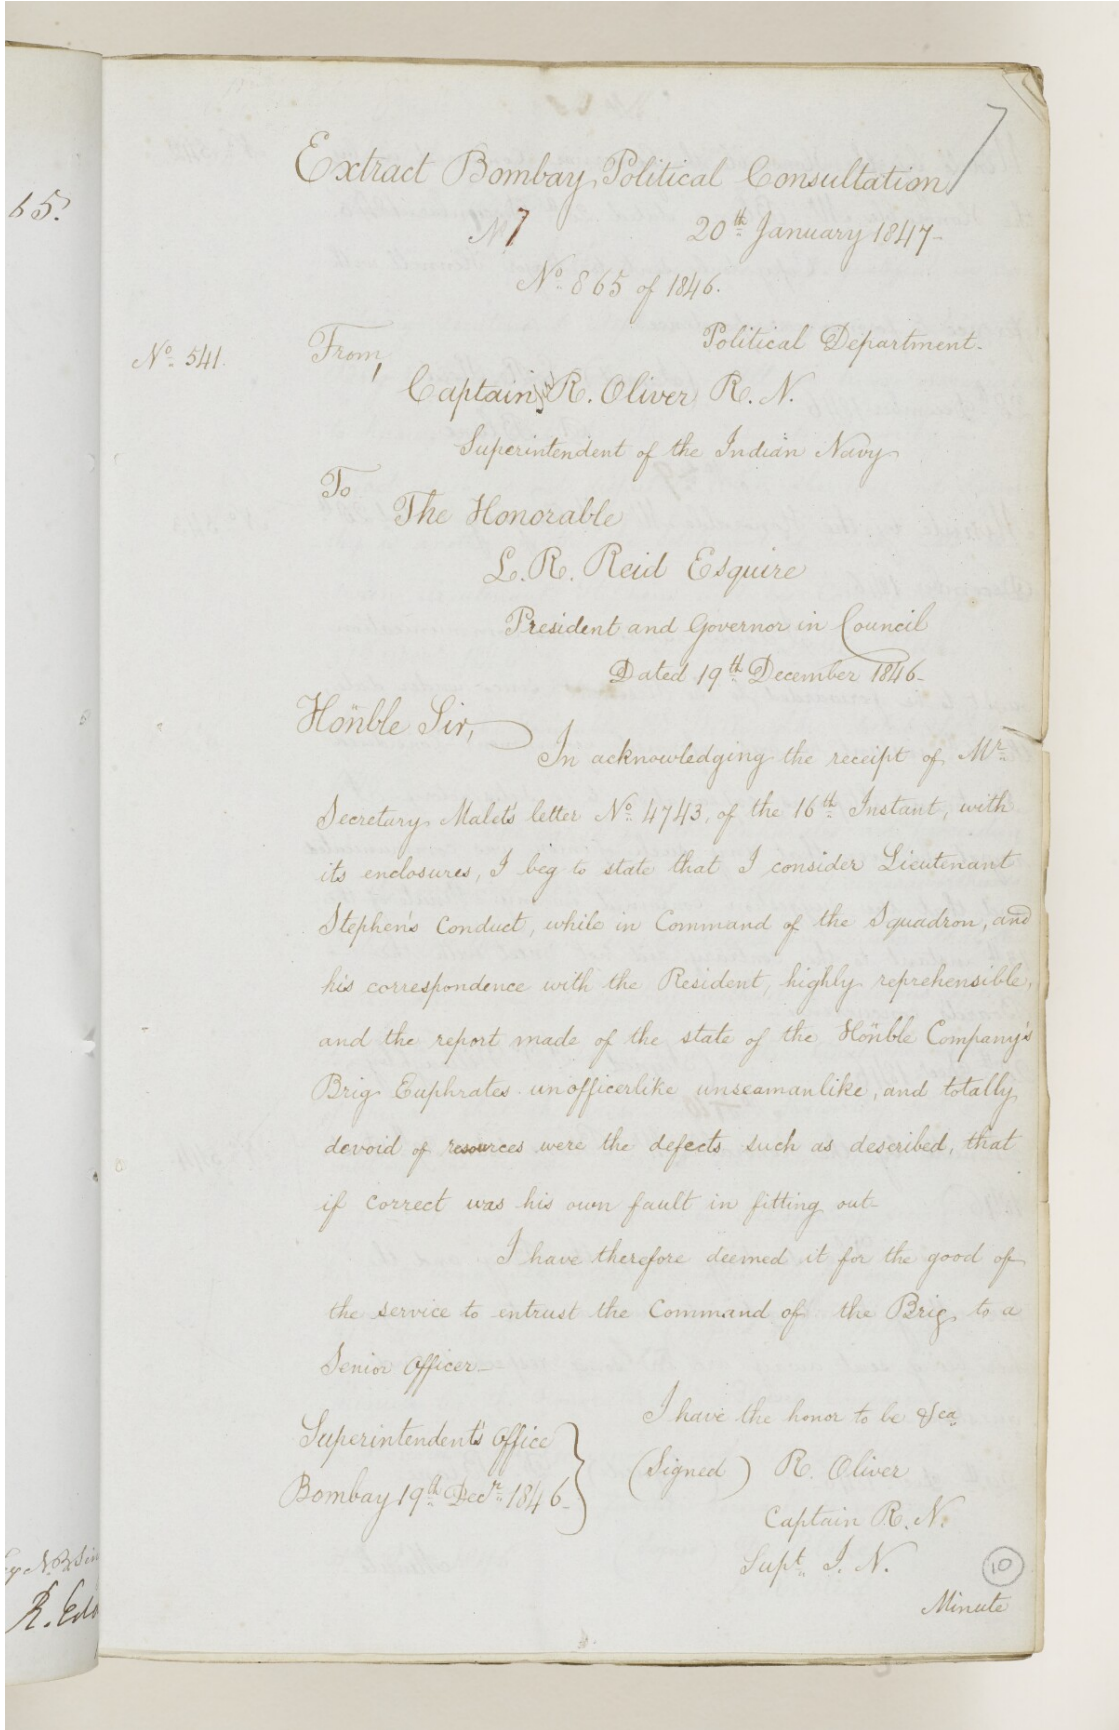 7
Extract Bombay Political Consultation
65.
No 7 20th January 1847-
No. 865 of 1846.
Political Department-
No. 541. From,
Captain R. Oliver R. N.
Superintendent of the Indian Navy
To
The Honorable
L. R. Reid Esquire
President and Governor in Council
Dated 19th December 1846-
Hon'ble Sir,
In acknowledging the receipt of Mr
Secretary Malet's letter No. 4743, of the 16th Instant, with
its enclosures, I beg to state that I consider Lieutenant
Stephen's Conduct, while in Command of the Squadron, and
his correspondence with the Resident, highly reprehensible,
and the report made of the state of the Hon'ble Company's
Brig Euphrates unofficerlike unseamanlike, and totally
devoid of resources were the defects such as described, that
if correct was his own fault in fitting out-
I have therefore deemed it for the good of
the service to entrust the Command of the Brig to a
Senior Officer-
I have the honor to be &ca
Superintendent's Office
(Signed) R. Oliver
Bombay 19th Decr 1846-
Captain R. N.
Supt. I. N.
10
R. Edo
Minute